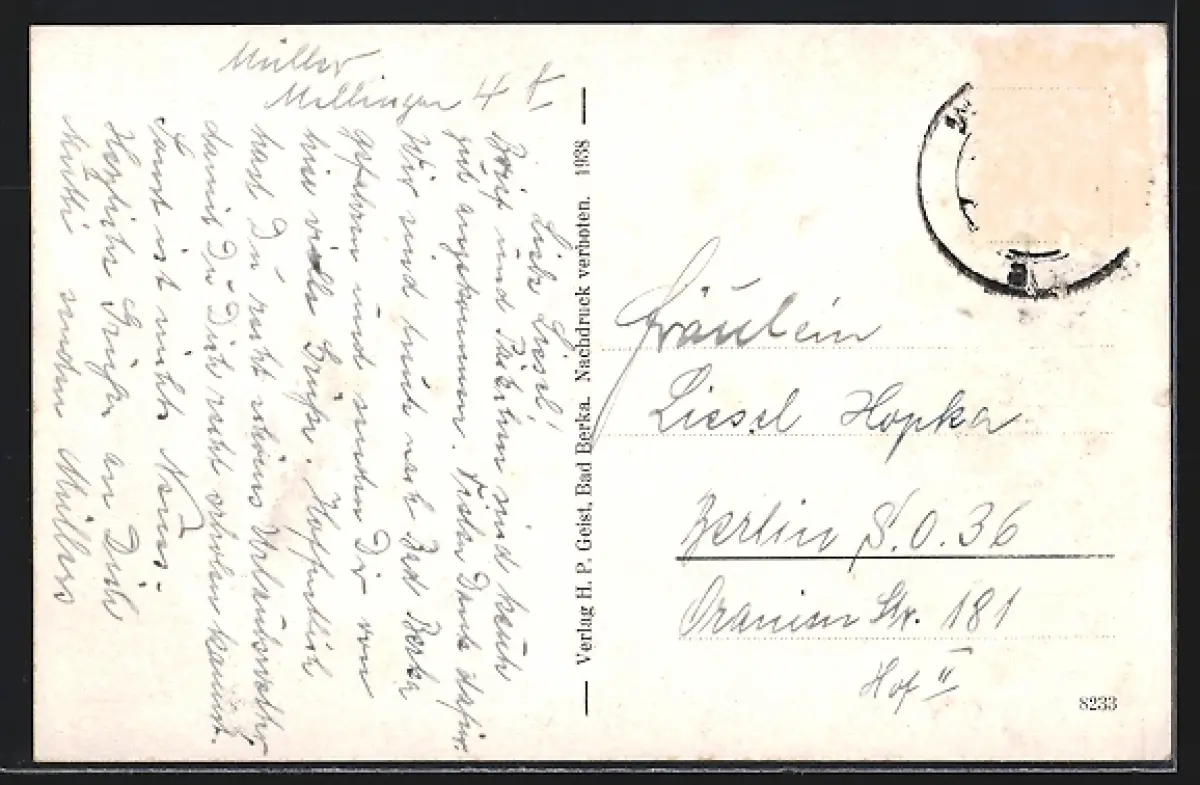 Müller
Mellingen
Liebe Liesel!
Brief und Päckchen sind heute
gut angekommen. Vielen Dank dafür.
Wir sind heute nach Bad Berka
gefahren und senden Dir von
hier viele Grüße. Hoffentlich
hast Du recht schönes Urlaubswetter
damit Du Dich recht erholen kannst.
Sonst ist nichts Neues.
Herzliche Grüße an Dich
Mutti senden Müllers
Verlag H. P. Geist, Bad Berka. Nachdruck verboten. 1938
Fräulein
Liesel Hopka
Berlin S.O. 36
Oranien Str. 181
Hof II
8233